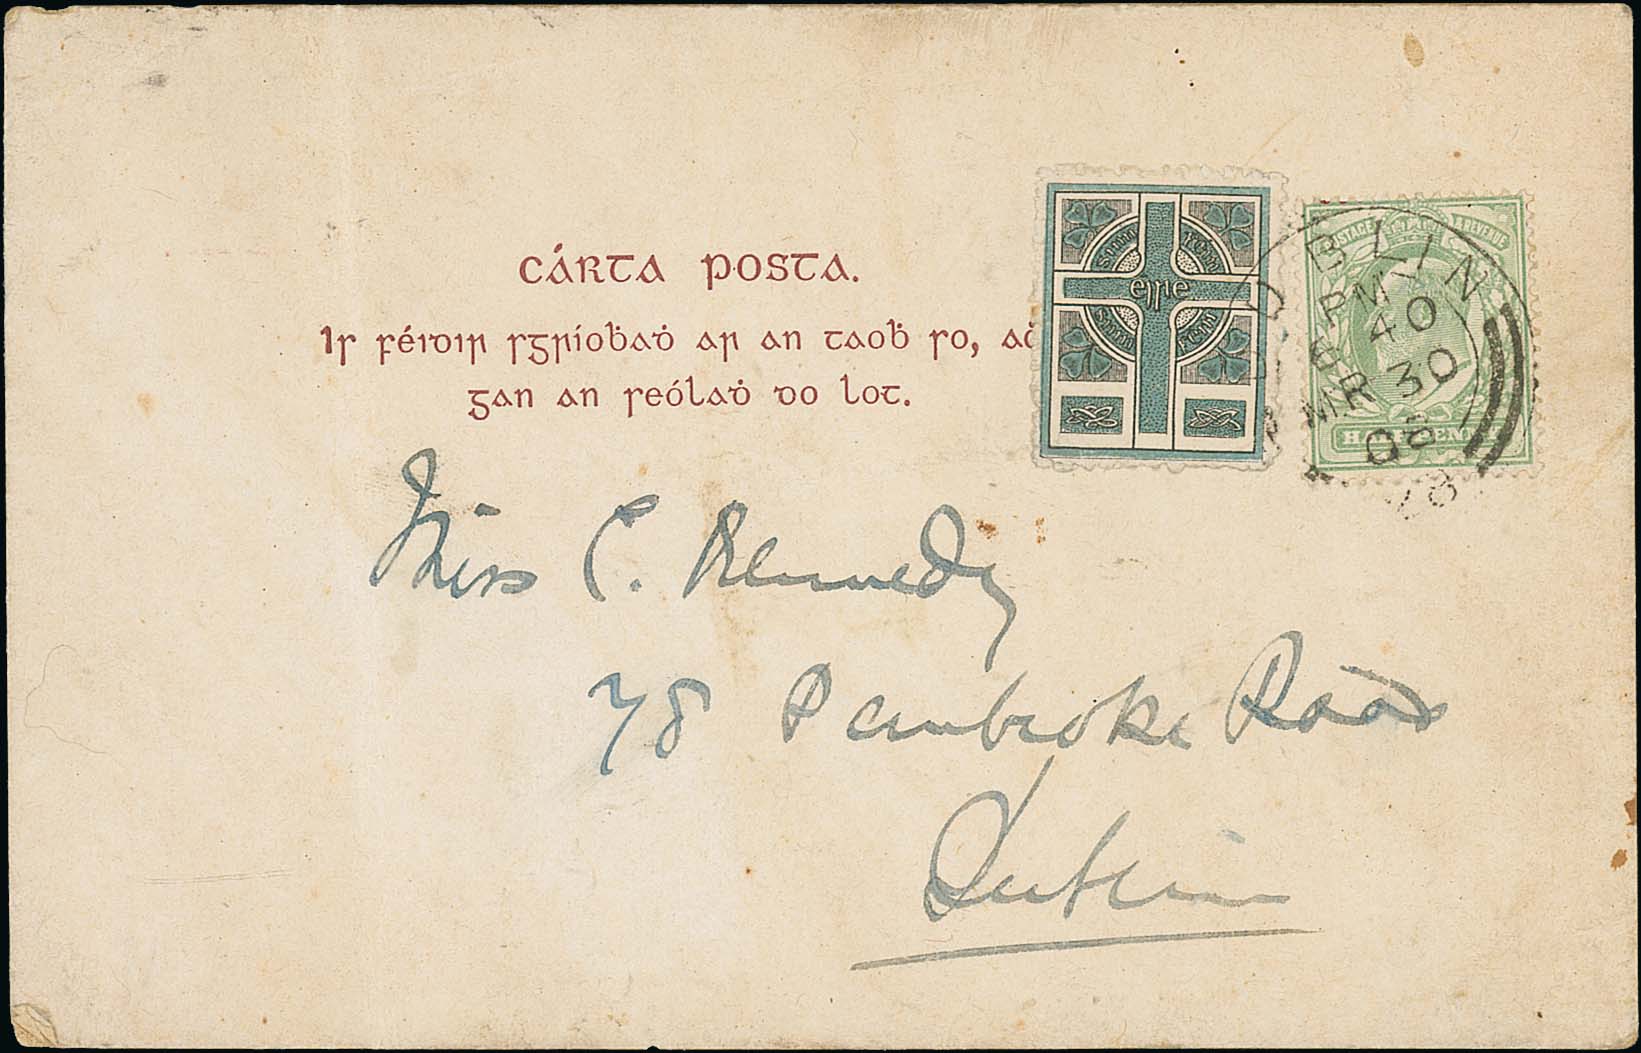 CÁRTA POSTA.
Is féidir sgríoḃaḋ ar an taoḃ so, aċ
gan an seólaḋ do lot.
sinn
féin
eire
sinn
féin
POSTAGE & REVENUE
HALFPENNY
DUBLIN
PM
40
MR 30
08
Miss C. Kennedy
78 Pembroke Road
Dublin